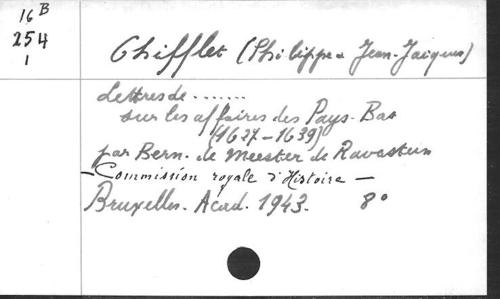 16 B
254
1
Chifflet (Philippe & Jean-Jacques)
Lettres de .......
sur les affaires des Pays-Bas
(1627-1639)
par Bern. de Meester de Ravestein
- Commission royale d'Histoire -
Bruxelles. Acad. 1943. 8°